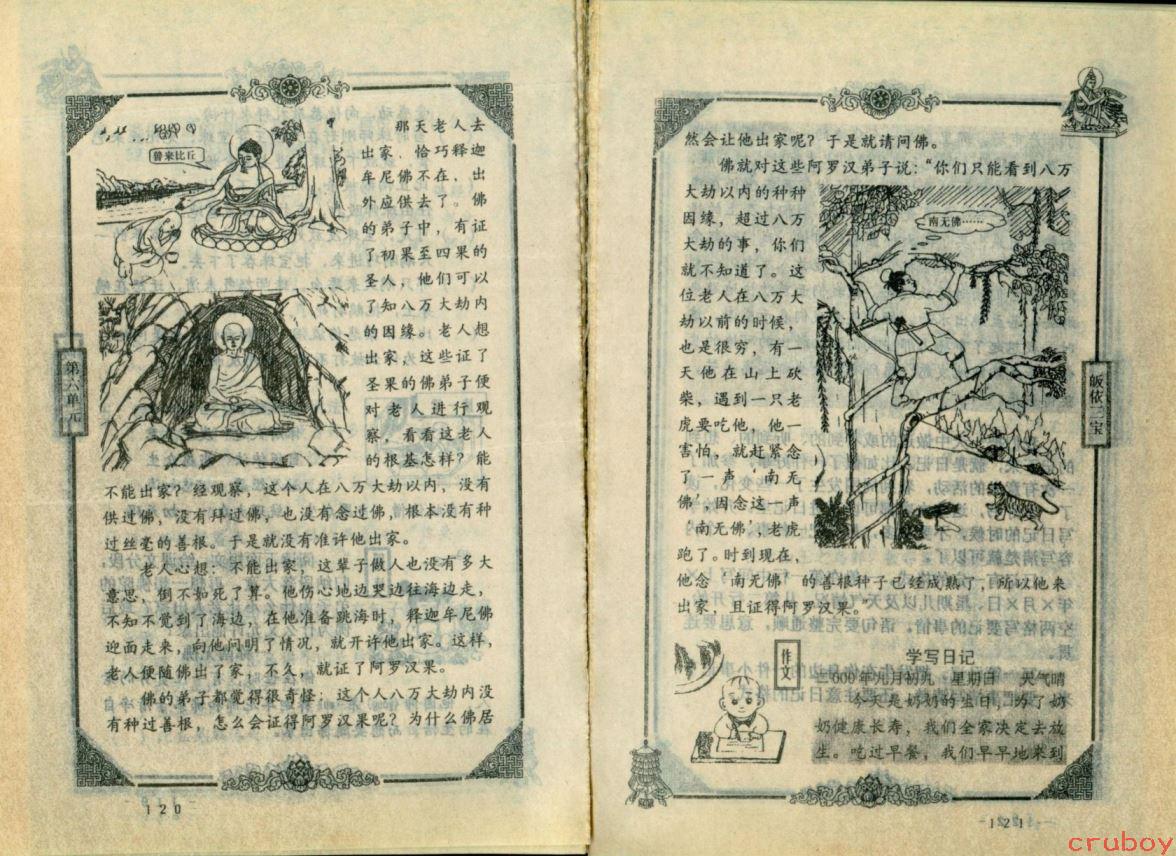 善来比丘
那天老人去
出家，恰巧释迦
牟尼佛不在，出
外应供去了。佛
的弟子中，有证
了初果至四果的
圣人，他们可以
了知八万大劫内
的因缘。老人想
出家，这些证了
圣果的佛弟子便
对老人进行观
察，看看这老人
的根基怎样？能
不能出家？经观察，这个人在八万大劫以内，没有
供过佛，没有拜过佛，也没有念过佛，根本没有种
过丝毫的善根。于是就没有准许他出家。
老人心想：不能出家，这辈子做人也没有多大
意思，倒不如死了算。他伤心地边哭边往海边走，
不知不觉到了海边，在他准备跳海时，释迦牟尼佛
迎面走来，向他问明了情况，就开许他出家。这样，
老人便随佛出了家，不久，就证了阿罗汉果。
佛的弟子都觉得很奇怪；这个人八万大劫内没
有种过善根，怎么会证得阿罗汉果呢？为什么佛居
第六单元
120
然会让他出家呢？于是就请问佛。
佛就对这些阿罗汉弟子说：“你们只能看到八万
大劫以内的种种
因缘，超过八万
大劫的事，你们
就不知道了。这
位老人在八万大
劫以前的时候，
也是很穷，有一
天他在山上砍
柴，遇到一只老
虎要吃他，他一
害怕，就赶紧念
了一声‘南无
佛’，因念这一声
‘南无佛’，老虎
跑了。时到现在，
他念‘南无佛’的善根种子已经成熟了，所以他来
出家，且证得阿罗汉果。”
南无佛……
皈依三宝
作文
学写日记
二000年九月初九 星期日 天气晴
今天是奶奶的生日，为了奶
奶健康长寿，我们全家决定去放
生。吃过早餐，我们早早地来到
121
cruboy